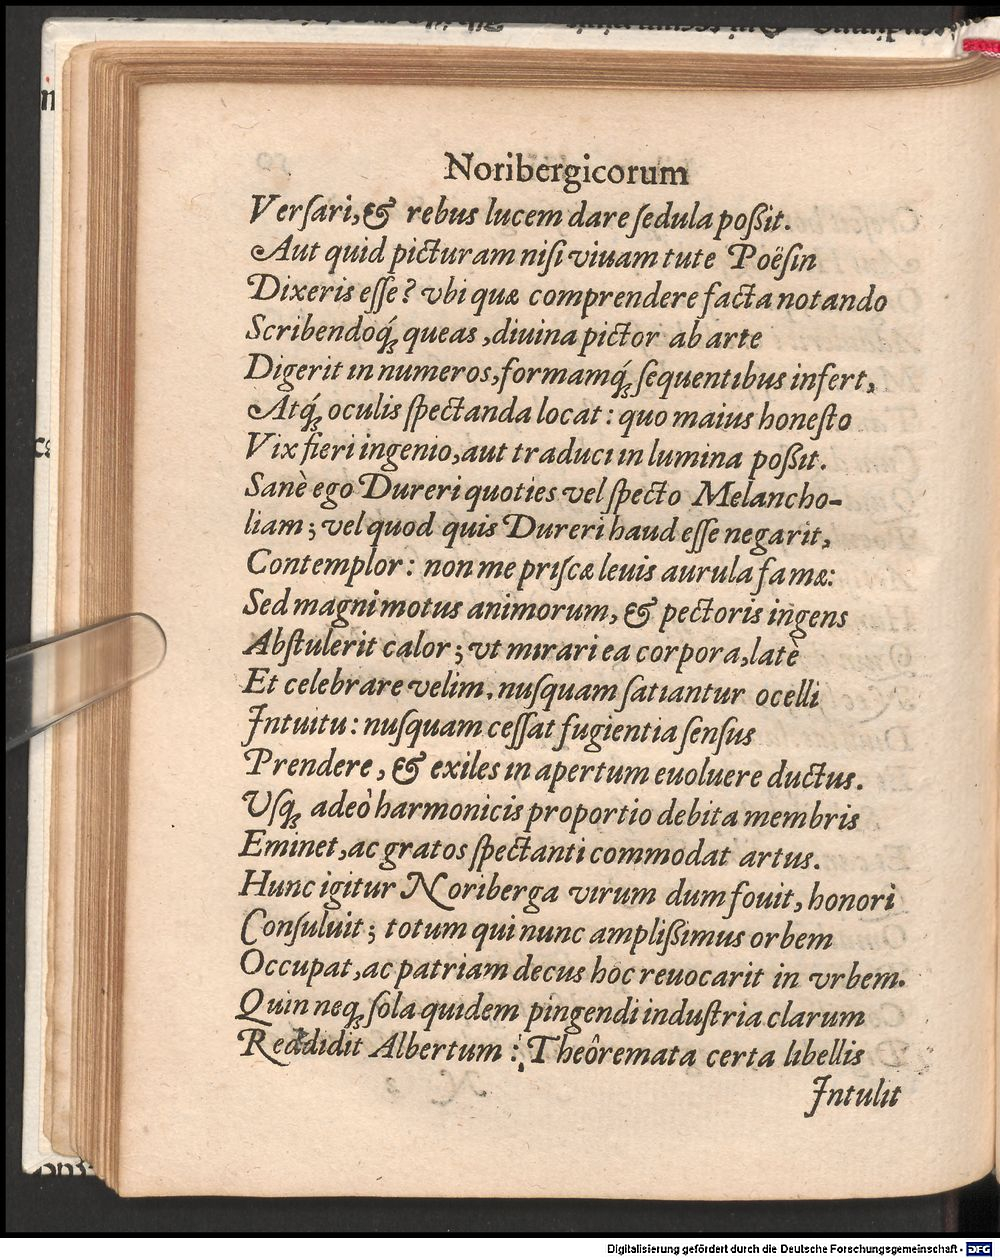 Noribergicorum
Verſari, & rebus lucem dare ſedula poßit.
Aut quid picturam niſi viuam tute Poëſin
Dixeris eſſe? vbi quæ comprendere facta notando
Scribendoq́ꝫ queas, diuina pictor ab arte
Digerit in numeros, formamq́ꝫ ſequentibus infert,
Atq́ꝫ oculis ſpectanda locat: quo maius honeſto
Vix fieri ingenio, aut traduci in lumina poßit.
Sanè ego Dureri quoties vel ſpecto Melancho-
liam; vel quod quis Dureri haud eſſe negarit,
Contemplor: non me priſcæ leuis aurula famæ:
Sed magni motus animorum, & pectoris ingens
Abſtulerit calor; vt mirari ea corpora, latè
Et celebrare velim. nuſquam ſatiantur ocelli
Intuitu: nuſquam ceſſat fugientia ſenſus
Prendere, & exiles in apertum euoluere ductus.
Uſqꝫ adeò harmonicis proportio debita membris
Eminet, ac gratos ſpectanti commodat artus.
Hunc igitur Noriberga virum dum fouit, honori
Conſuluit; totum qui nunc amplißimus orbem
Occupat, ac patriam decus hoc reuocarit in vrbem.
Quin neqꝫ ſola quidem pingendi induſtria clarum
Reddidit Albertum: Theôremata certa libellis
Intulit
Digitalisierung gefördert durch die Deutsche Forschungsgemeinschaft - DFG